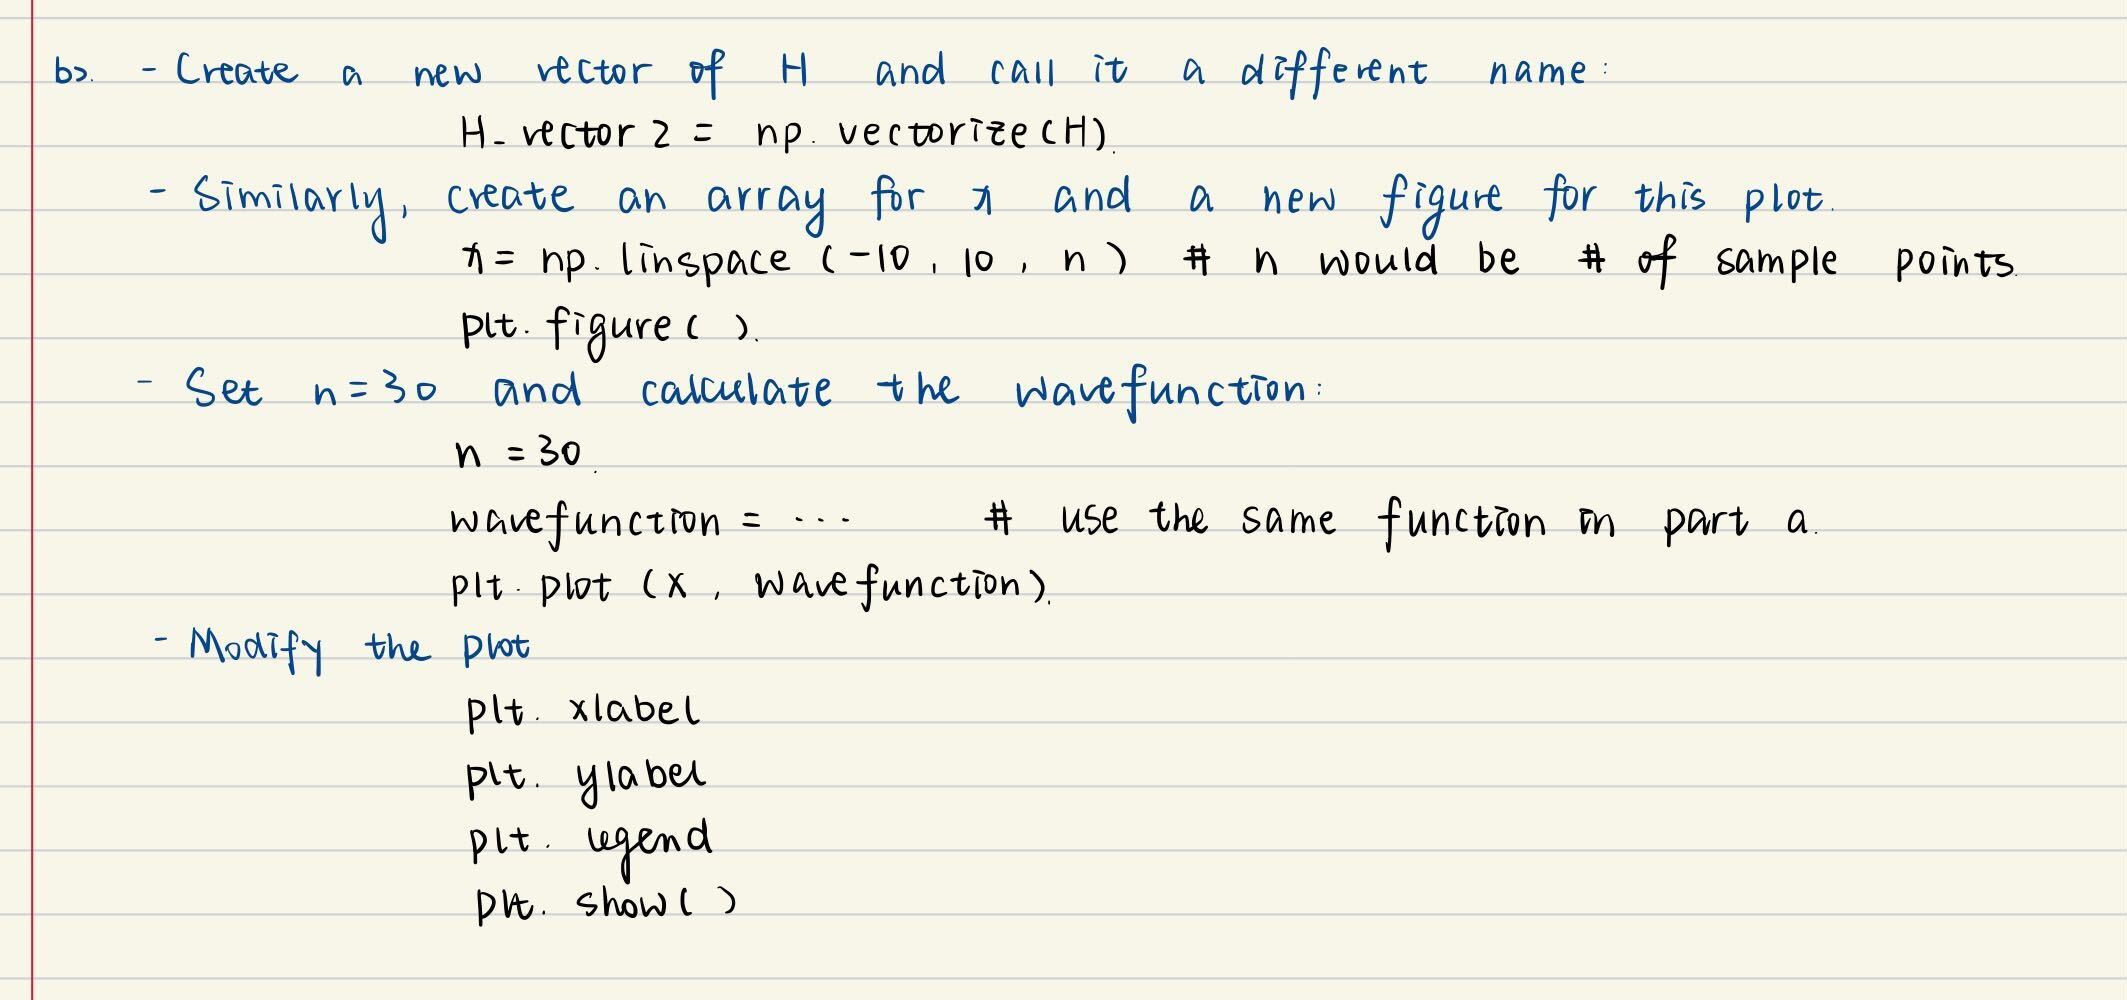 b). - Create a new vector of H and call it a different name:
H_vector2 = np.vectorize(H).
- Similarly, create an array for x and a new figure for this plot.
x = np.linspace(-10, 10, n) # n would be # of sample points.
plt.figure( ).
- Set n=30 and calculate the wavefunction:
n = 30.
wavefunction = ... # use the same function in part a.
plt.plot(x, wavefunction).
- Modify the plot
plt.xlabel
plt.ylabel
plt.legend
plt.show( )